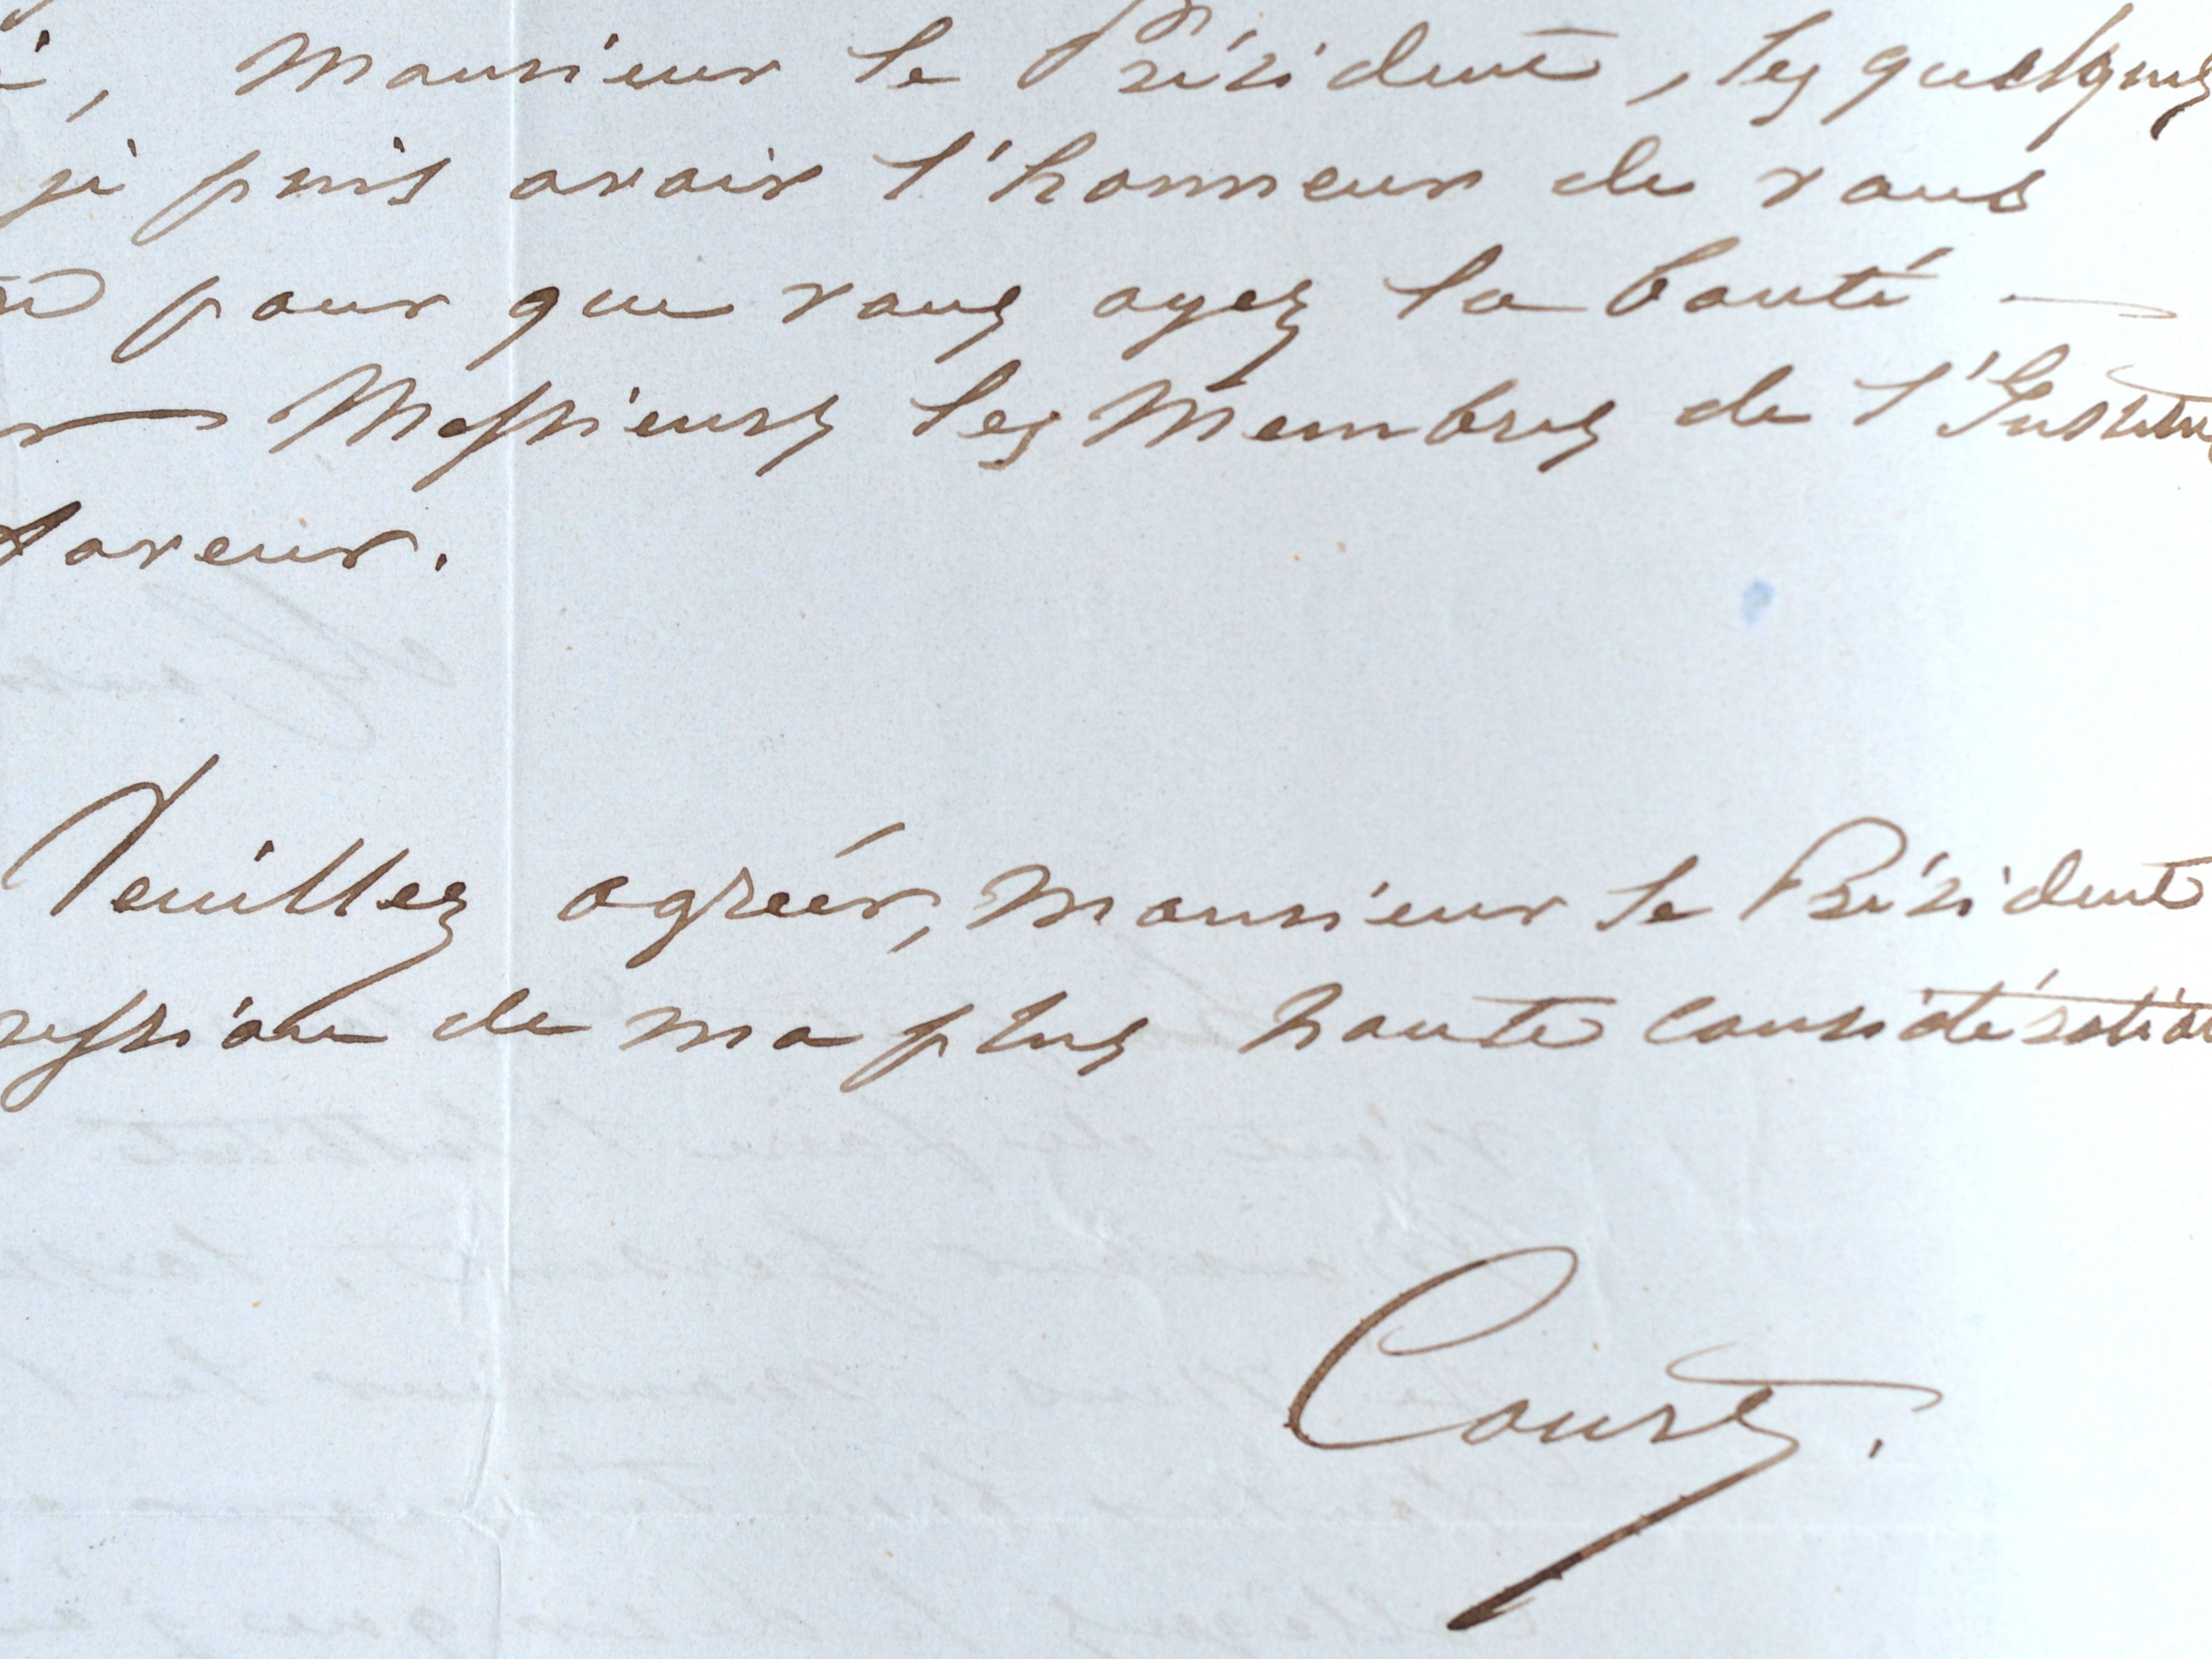 , Monsieur le Président, les quelques
je puis avoir l'honneur de vous
pour que vous ayez la bonté
Messieurs les Membres de l'Institu
faveur.
Veuillez agréér, Monsieur le Président
ression de ma plus haute considération
Court.